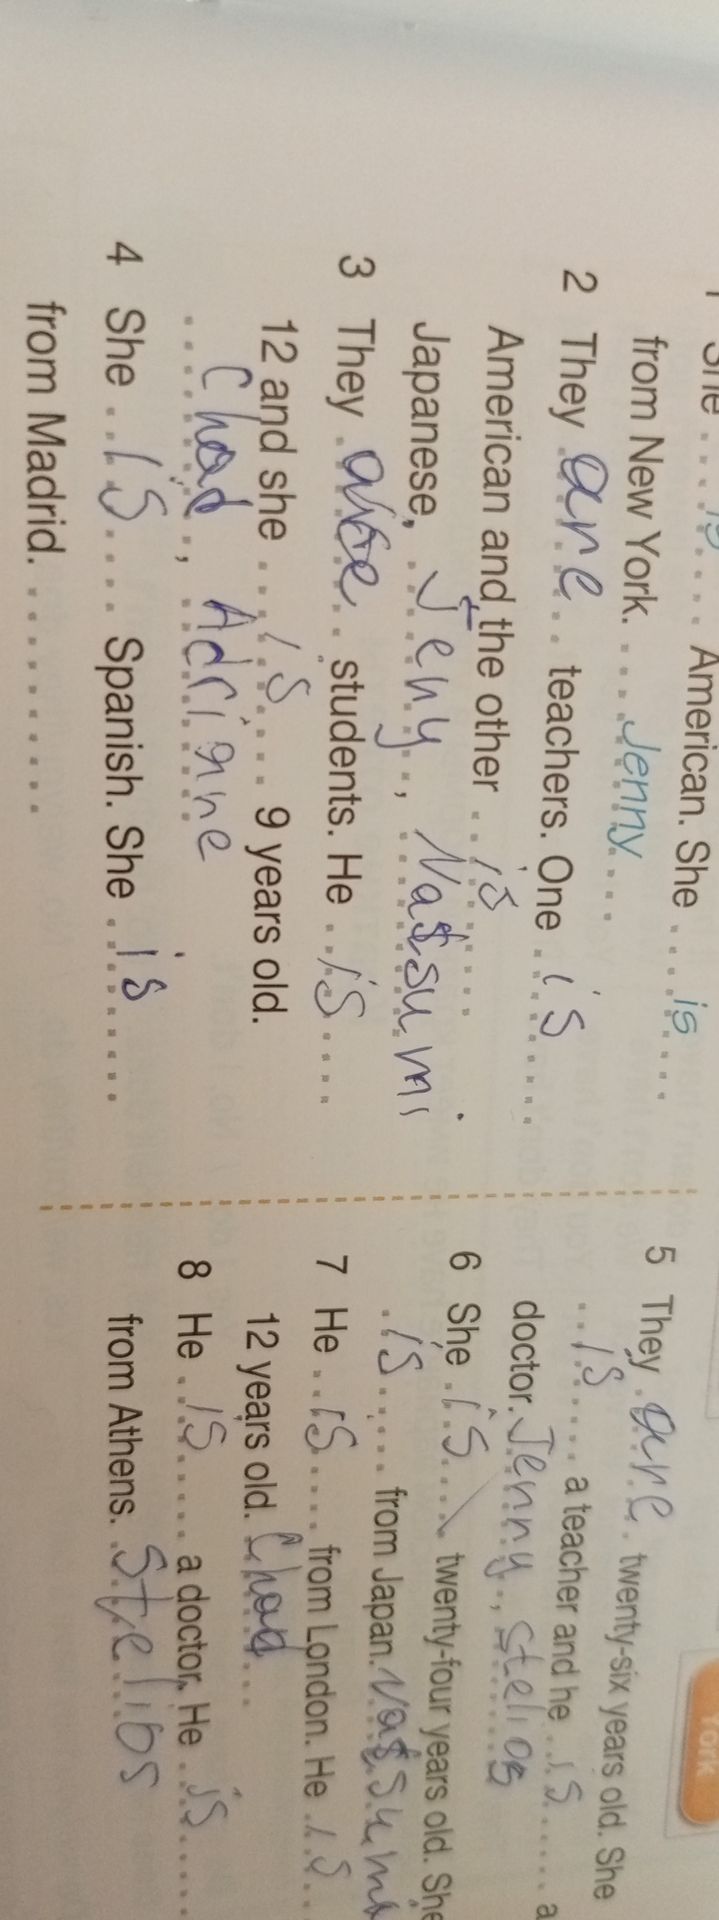 1 She is American. She is
from New York. Jenny
2 They are teachers. One is
American and the other is
Japanese, Jeny, Natsumi
3 They are students. He is
12 and she is 9 years old.
Chad, Adrianne
4 She is Spanish. She is
from Madrid.
5 They are twenty-six years old. She
is a teacher and he is a
doctor. Jenny, stelios
6 She is twenty-four years old. She
is from Japan. Natsumi
7 He is from London. He is
12 years old. Chad
8 He is a doctor. He is
from Athens. Stelios
York